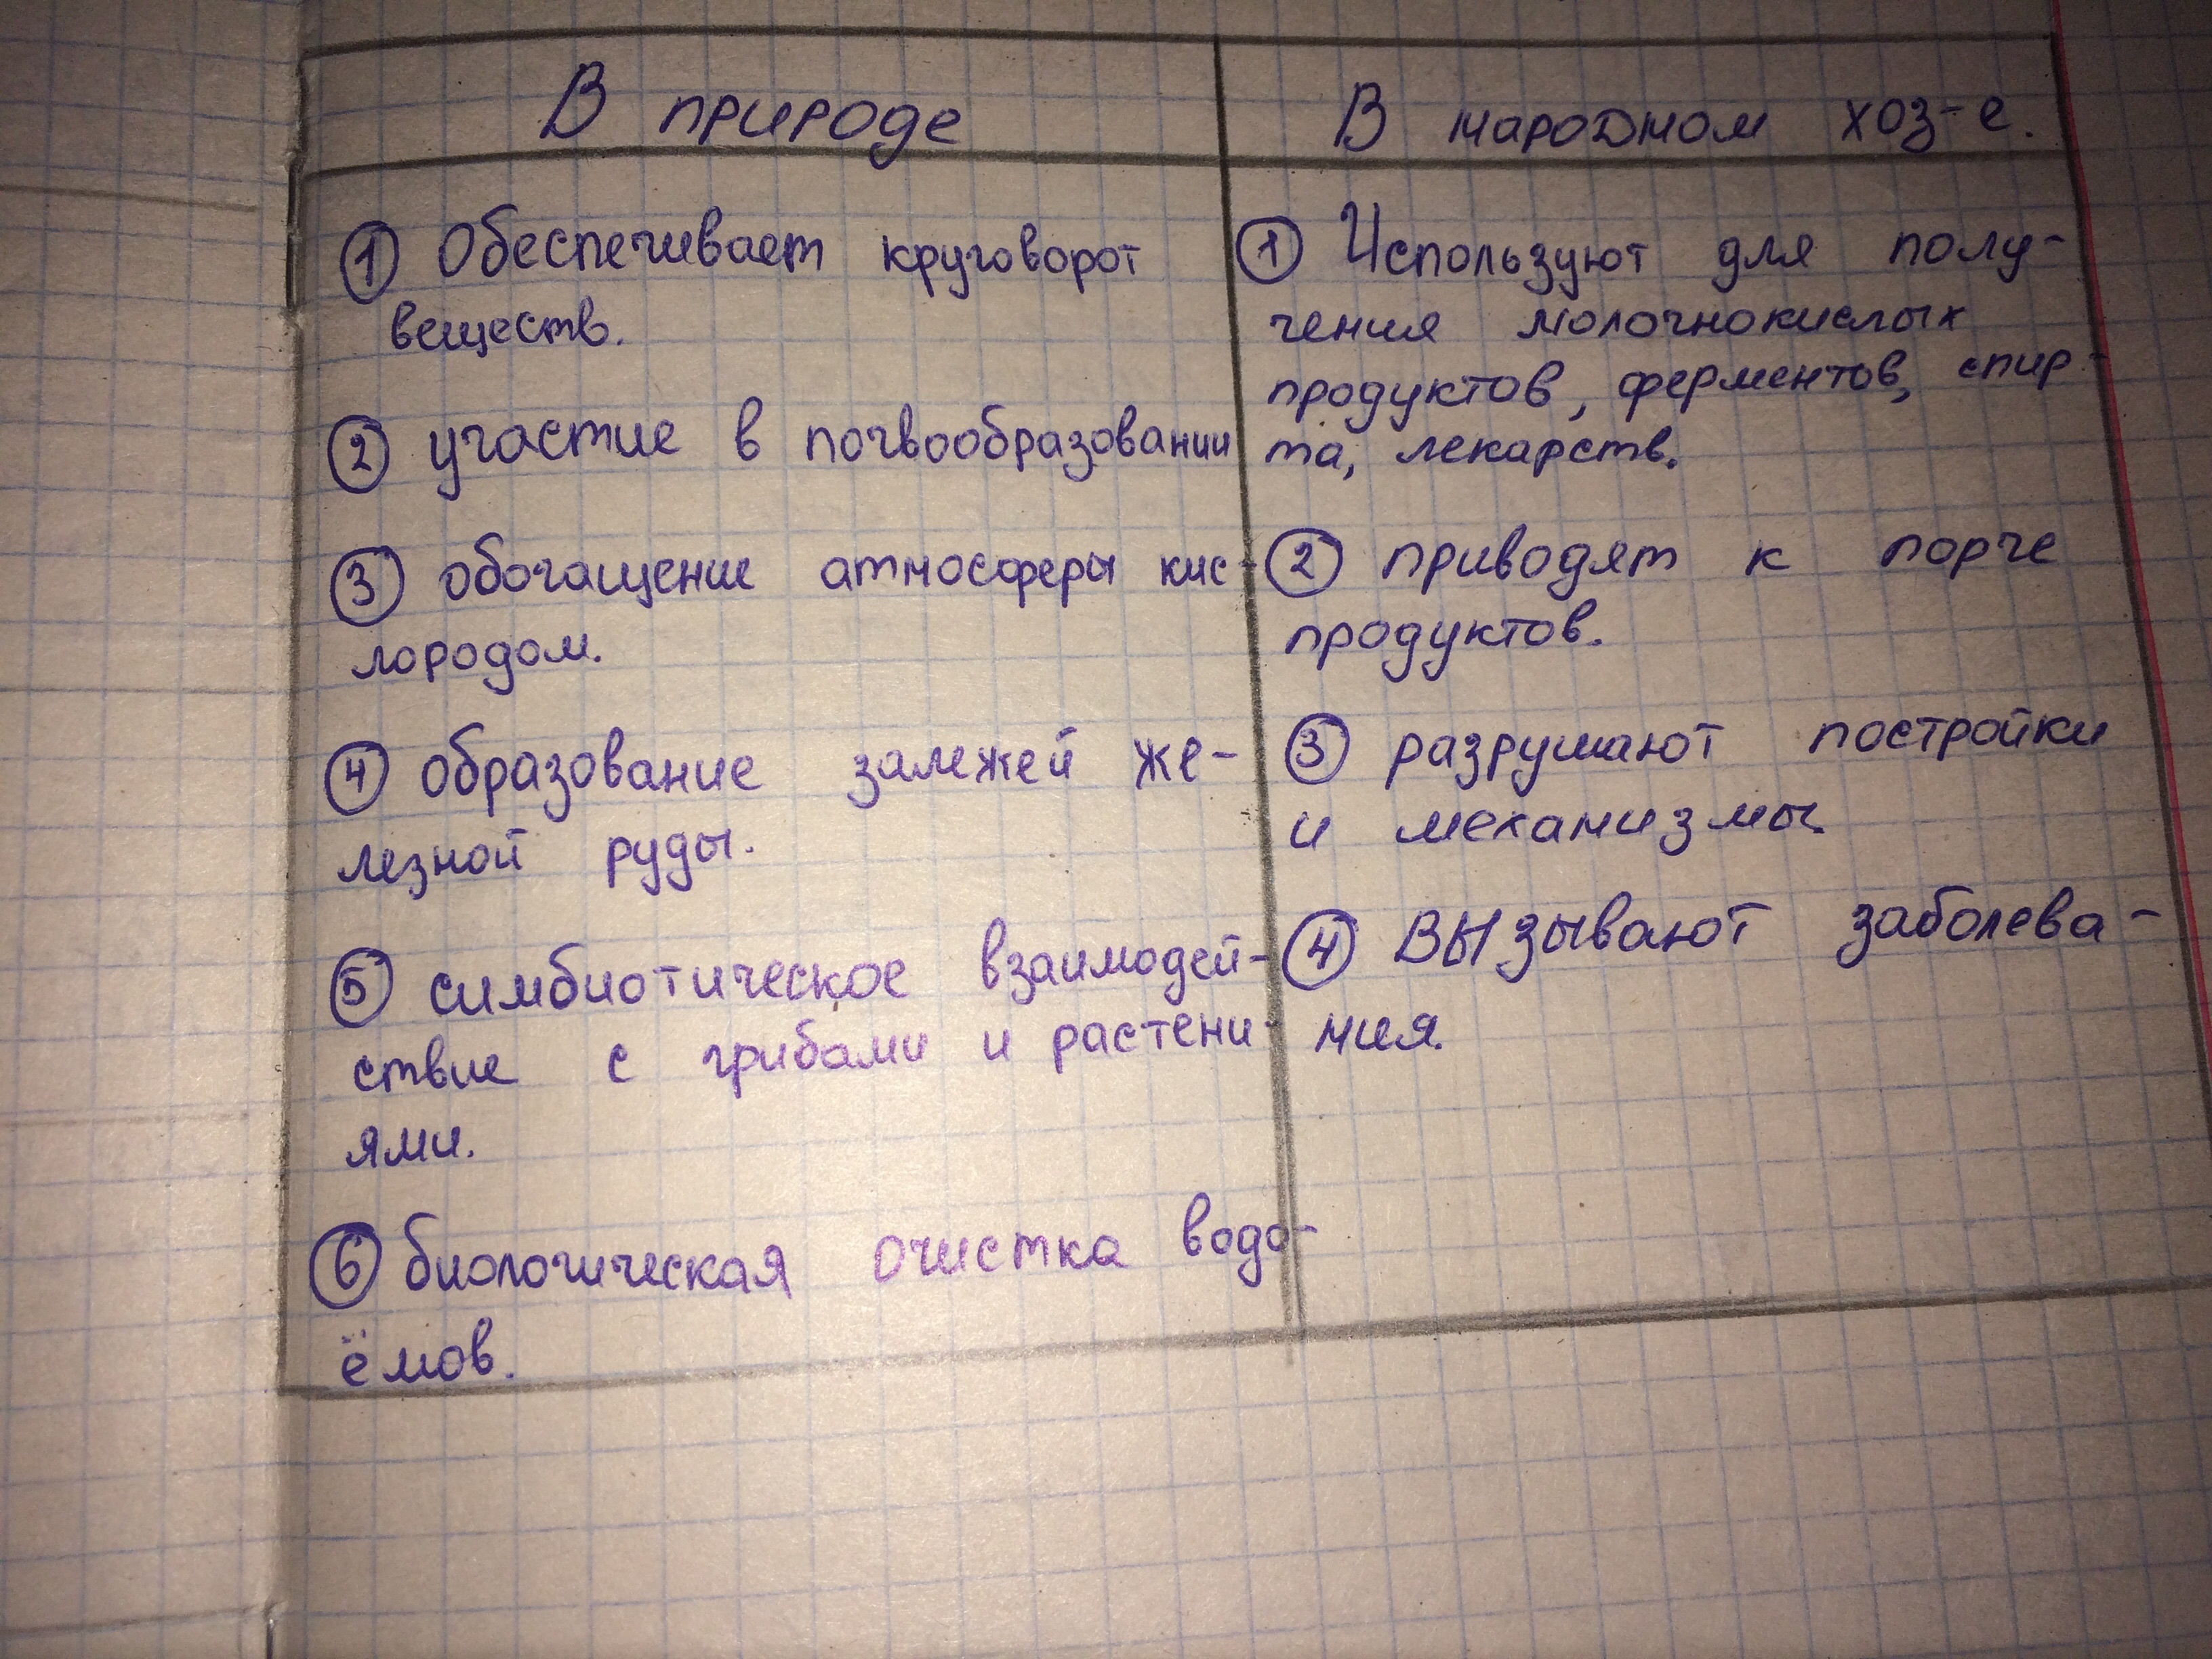 В природе
① Обеспечивает круговорот
веществ.
② участие в почвообразовании
③ обогащение атмосферы кис-
лородом.
④ образование залежей же-
лезной руды.
⑤ симбиотическое взаимодей-
ствие с грибами и растени-
ями.
⑥ биологическая очистка водо-
ёмов.
В народном хоз-е.
① Используют для полу-
чения молочнокислых
продуктов, ферментов, спир-
та, лекарств.
② приводят к порче
продуктов.
③ разрушают постройки
и механизмы.
④ Вызывают заболева-
ния.